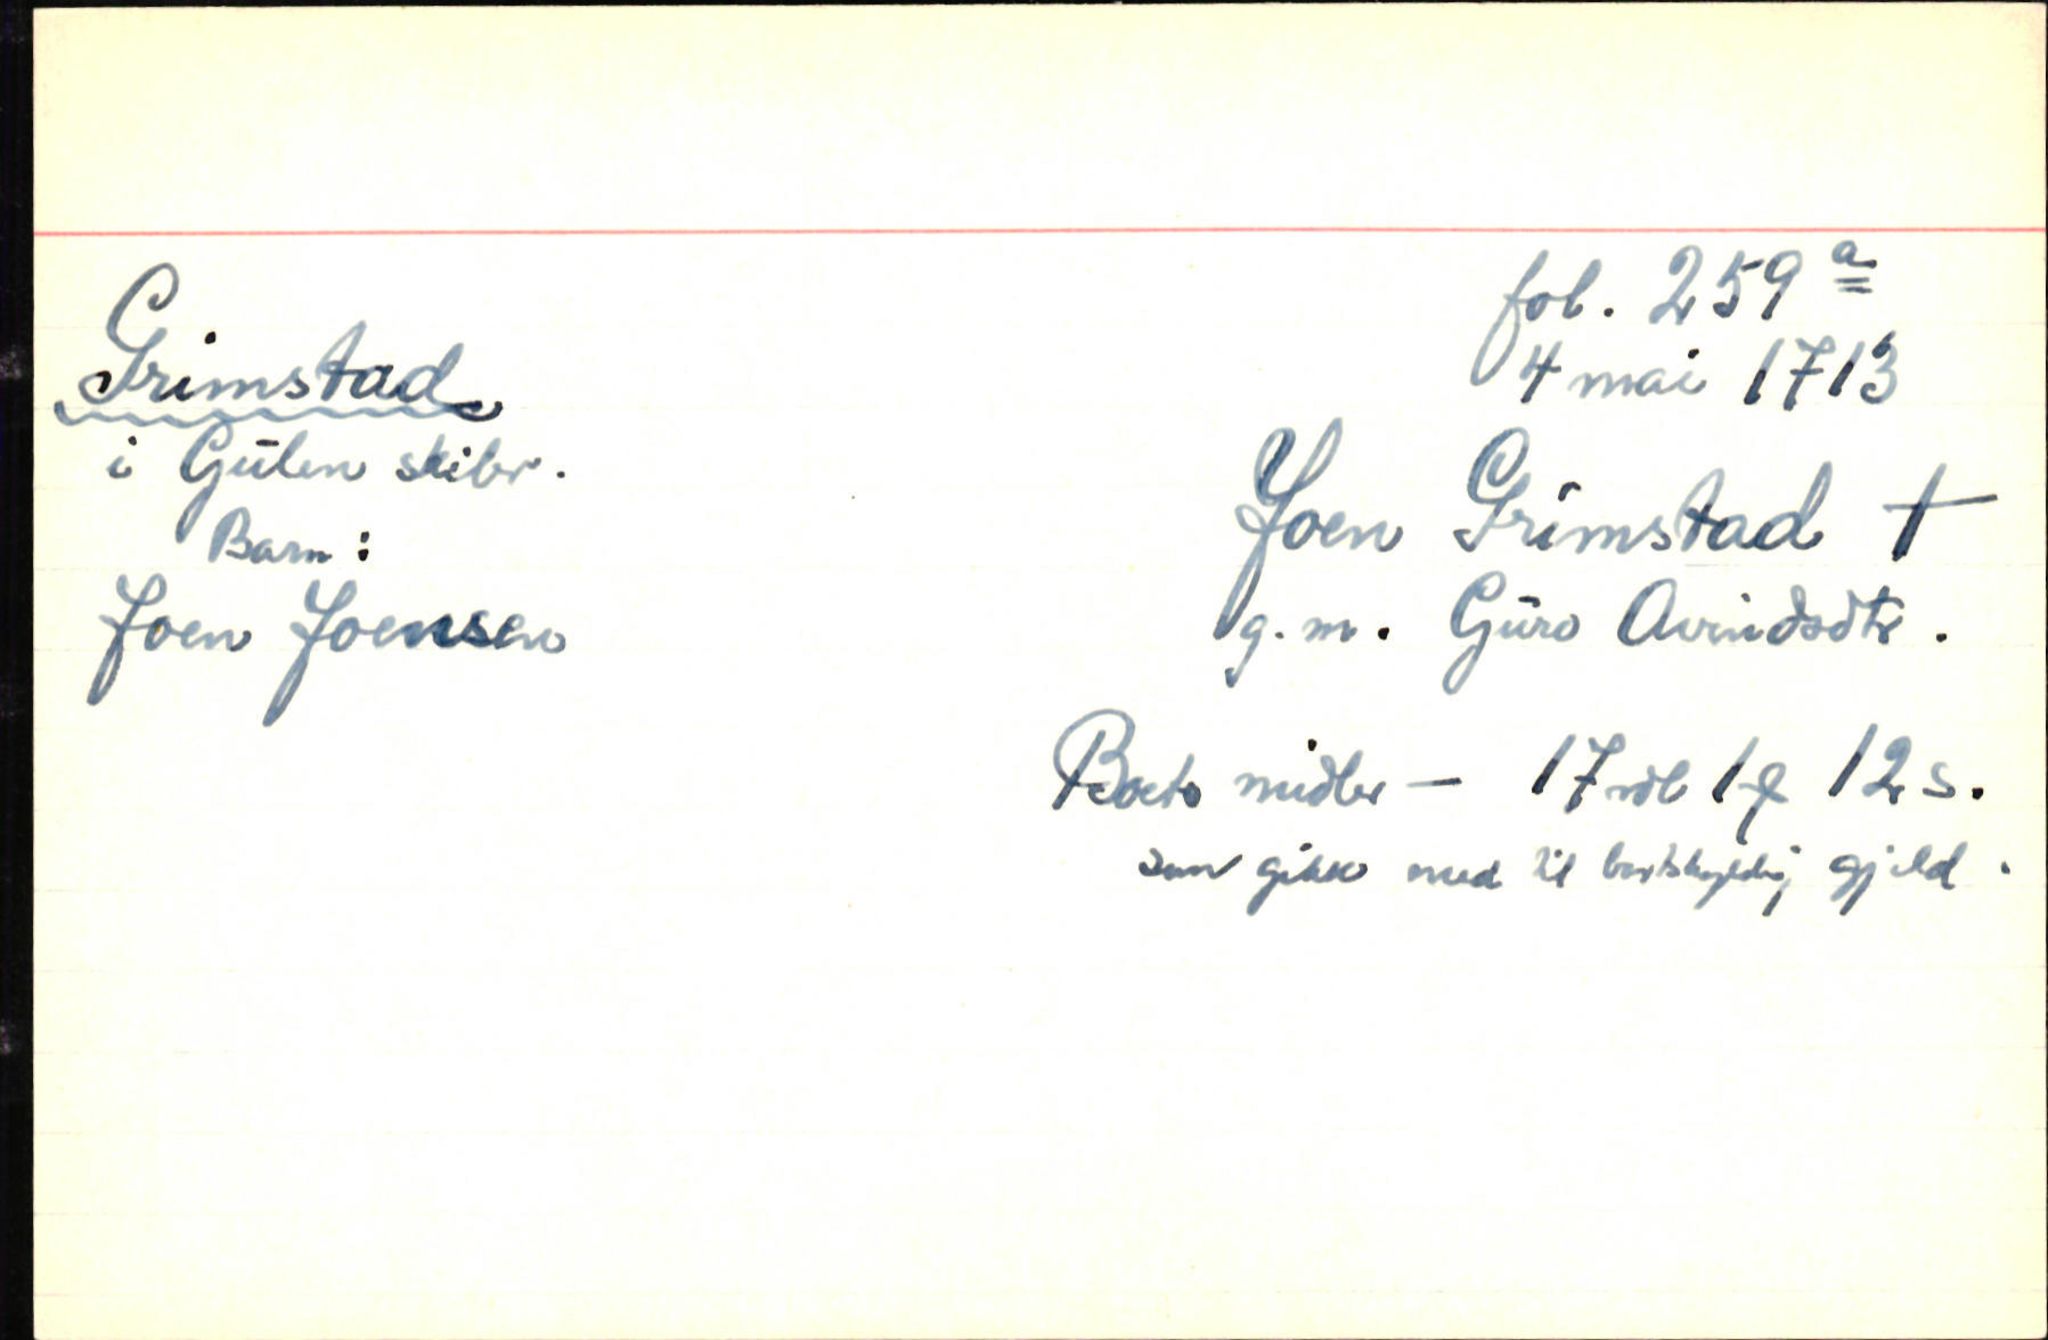 Grimstad
i Gūlen skibr.
Barn:
Joen Joensen
fol. 259 a
4 mai 1713
Joen Grimstad †
g.m. Gūro Avindsdtr.
Boets midler — 17 rdl 1 ƒ 12 s.
som gikk med til bortskyldig gjeld.